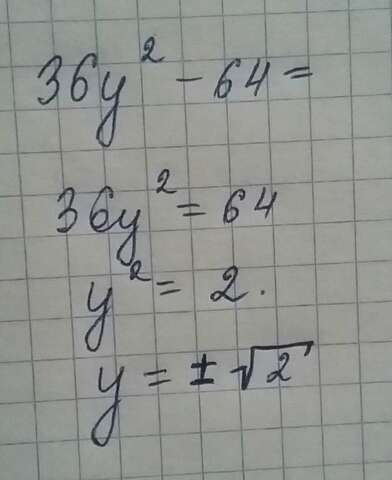 36y² - 64 =
36y² = 64
y² = 2.
y = ± √2